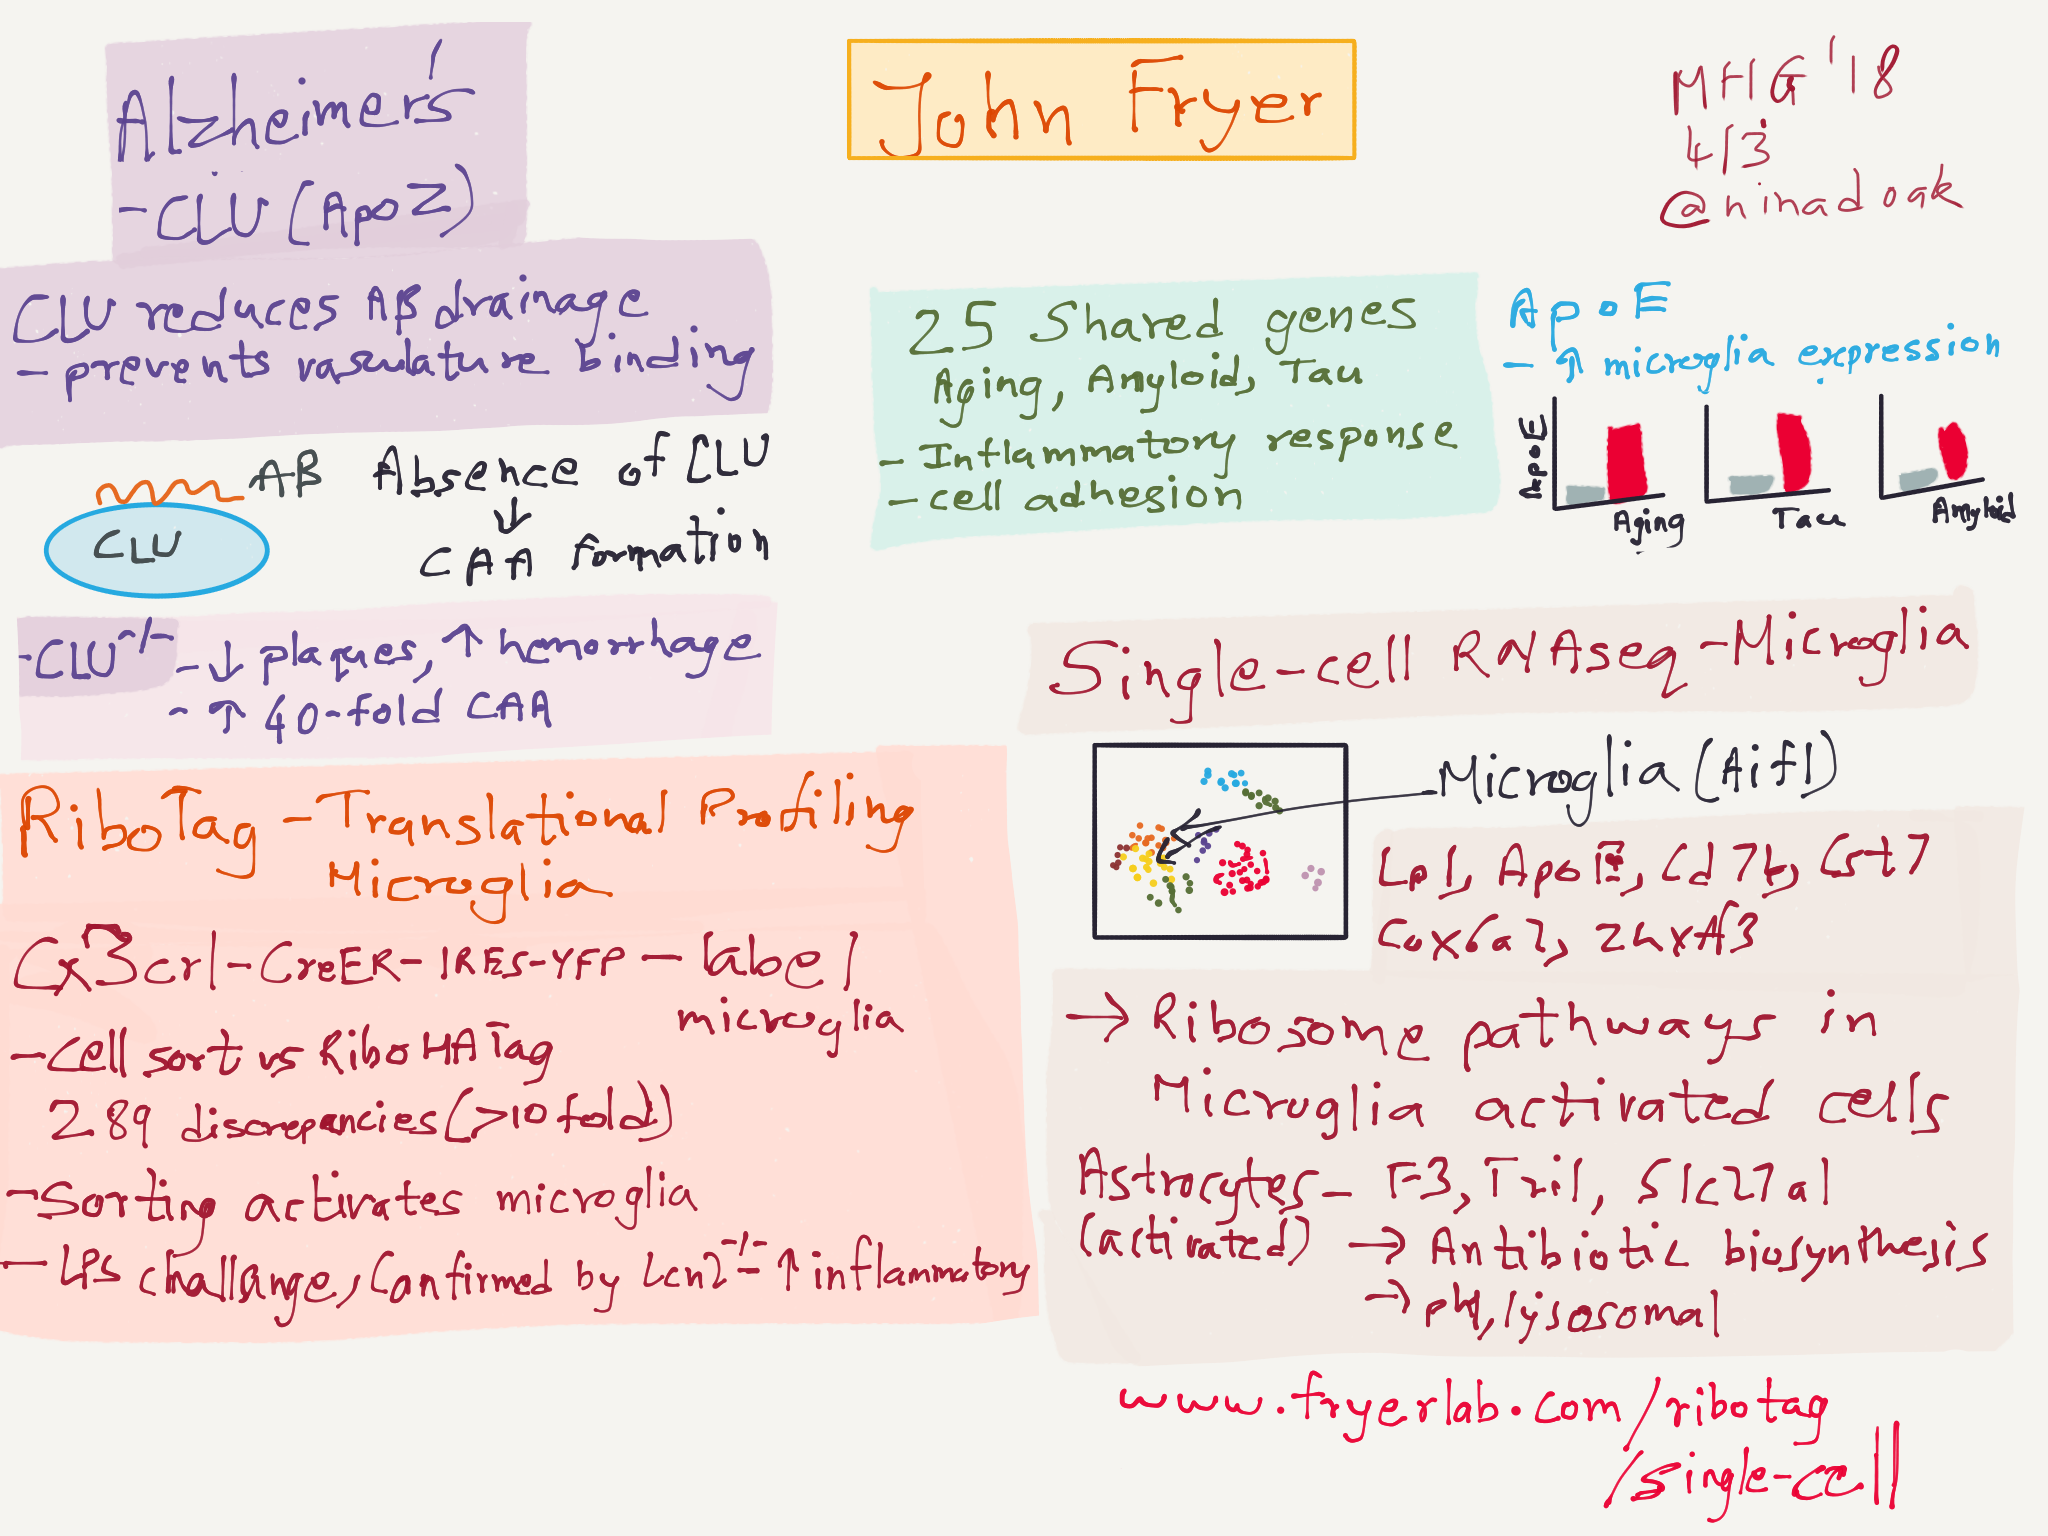 Alzheimer's
- CLU (Apo Z)
John Fryer
MHG '18
4/3
@ninadoak
CLU reduces AB drainage
- prevents vasculature binding
AB
CLU
Absence of CLU
↓
CAA formation
- CLU -/- - ↓ plaques, ↑ hemorrhage
- ↑ 40-fold CAA
RiboTag - Translational Profiling
Microglia
Cx3cr1-CreER-IRES-YFP - label
microglia
- Cell sort vs RiboHATag
289 discrepancies (>10 fold)
- Sorting activates microglia
- LPS challange, Confirmed by Lcn2 -/- - ↑ inflammatory
25 Shared genes
Aging, Amyloid, Tau
- Inflammatory response
- cell adhesion
ApoE
- ↑ microglia expression
ApoE
Aging
Tau
Amyloid
Single-cell RNAseq - Microglia
Microglia (Aif1)
Lpl, ApoE, Cd7b, Cst7
Cox6a2,
→ Ribosome pathways in
Microglia activated cells
Astrocytes - F3, Tril, Slc27a1
(activated) → Antibiotic biosynthesis
→ pH, lysosomal
www.fryerlab.com/ribotag
/single-cell